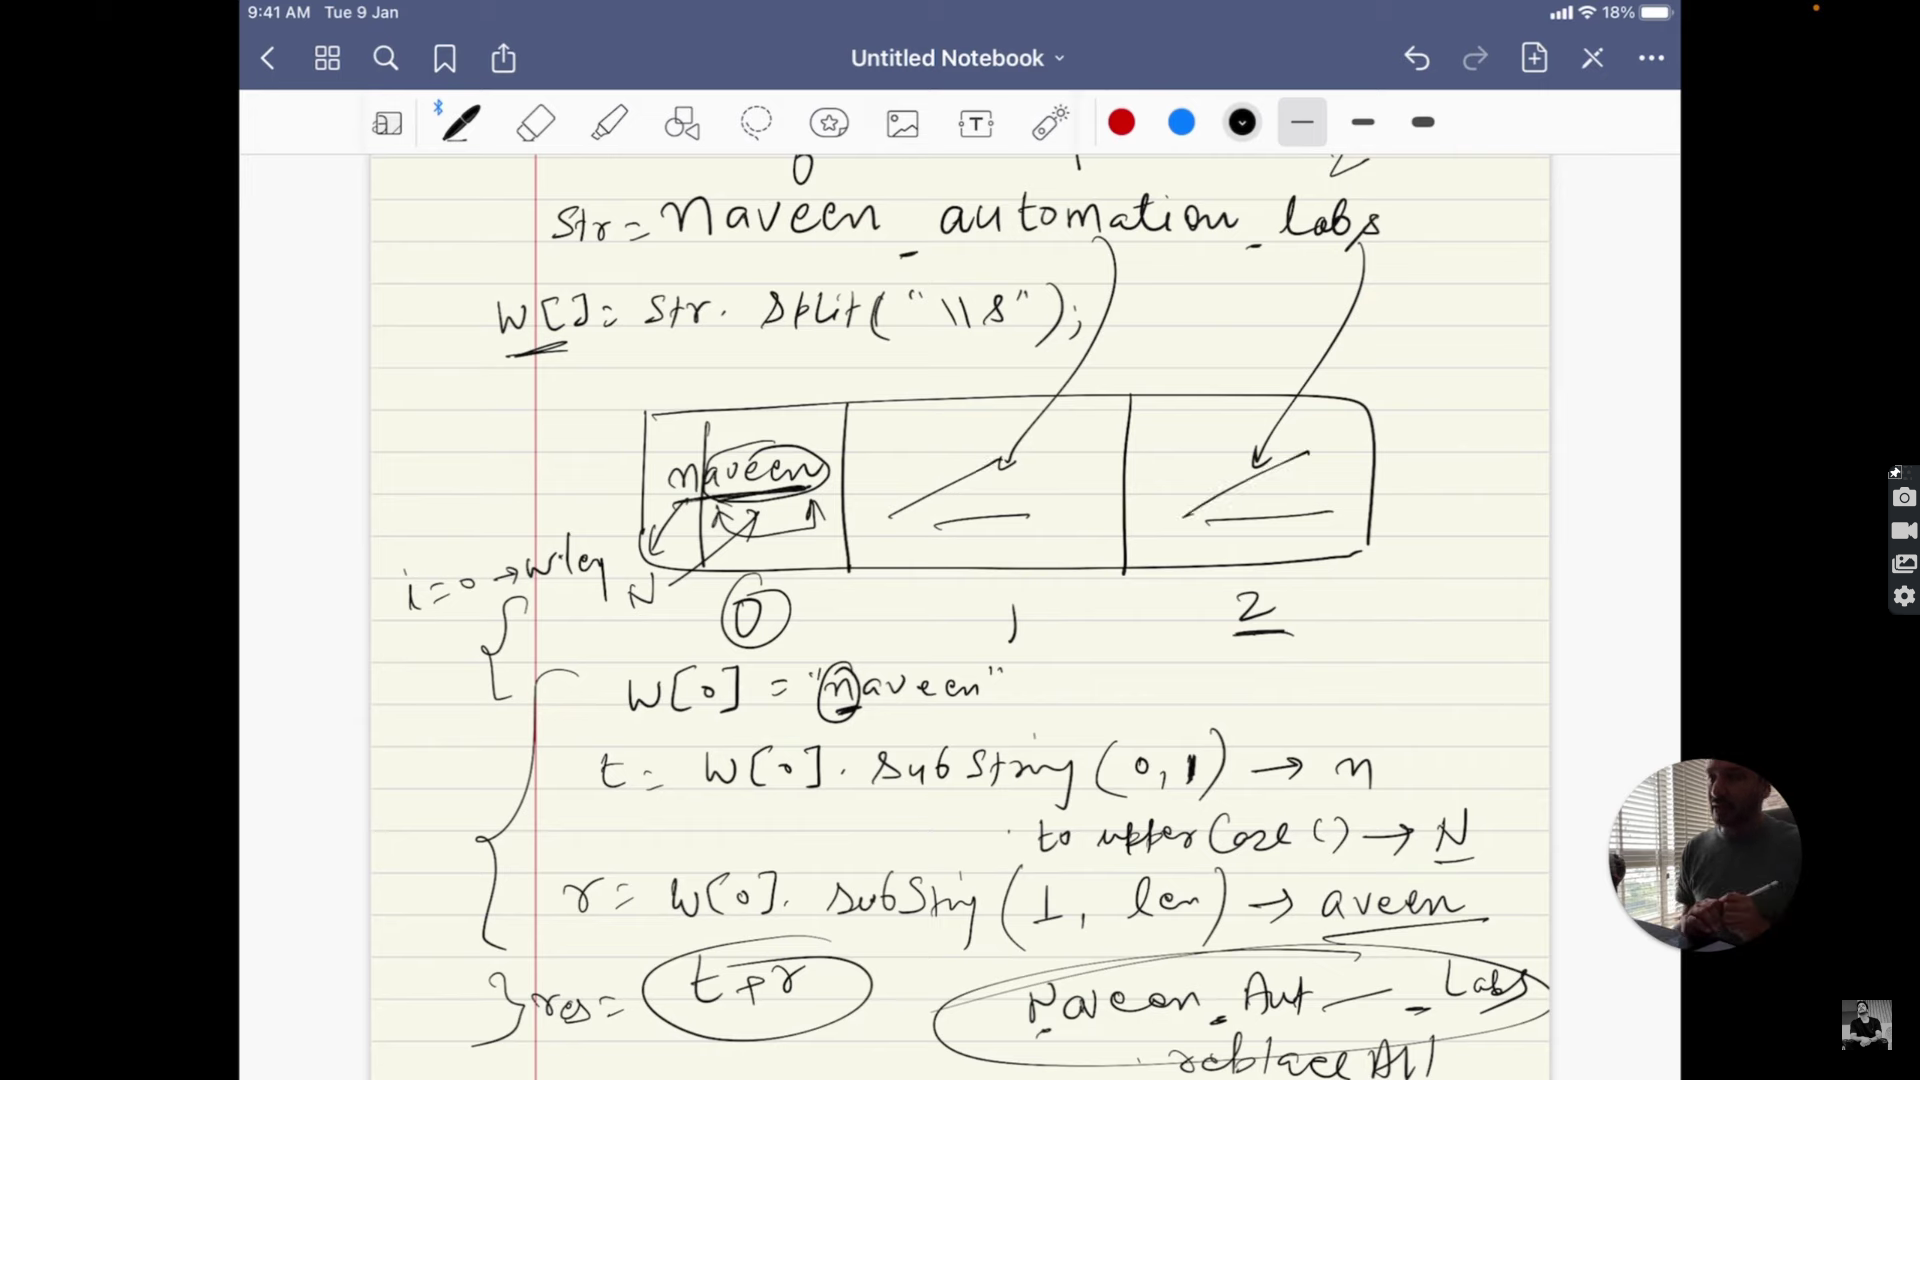 9:41 AM Tue 9 Jan
18%
Untitled Notebook
T
0 1 2
Str = naveen _ automation _ labs
W[] = Str. Split("\\s");
naveen
i=0 → w.len
N
0 1 2
W[0] = "naveen"
t = W[0]. SubString (0, 1) → n
to upperCase () → N
r = W[0]. SubString (1, len) → aveen
} res = t + r
Naveen _ Aut — _ Labs
replace All